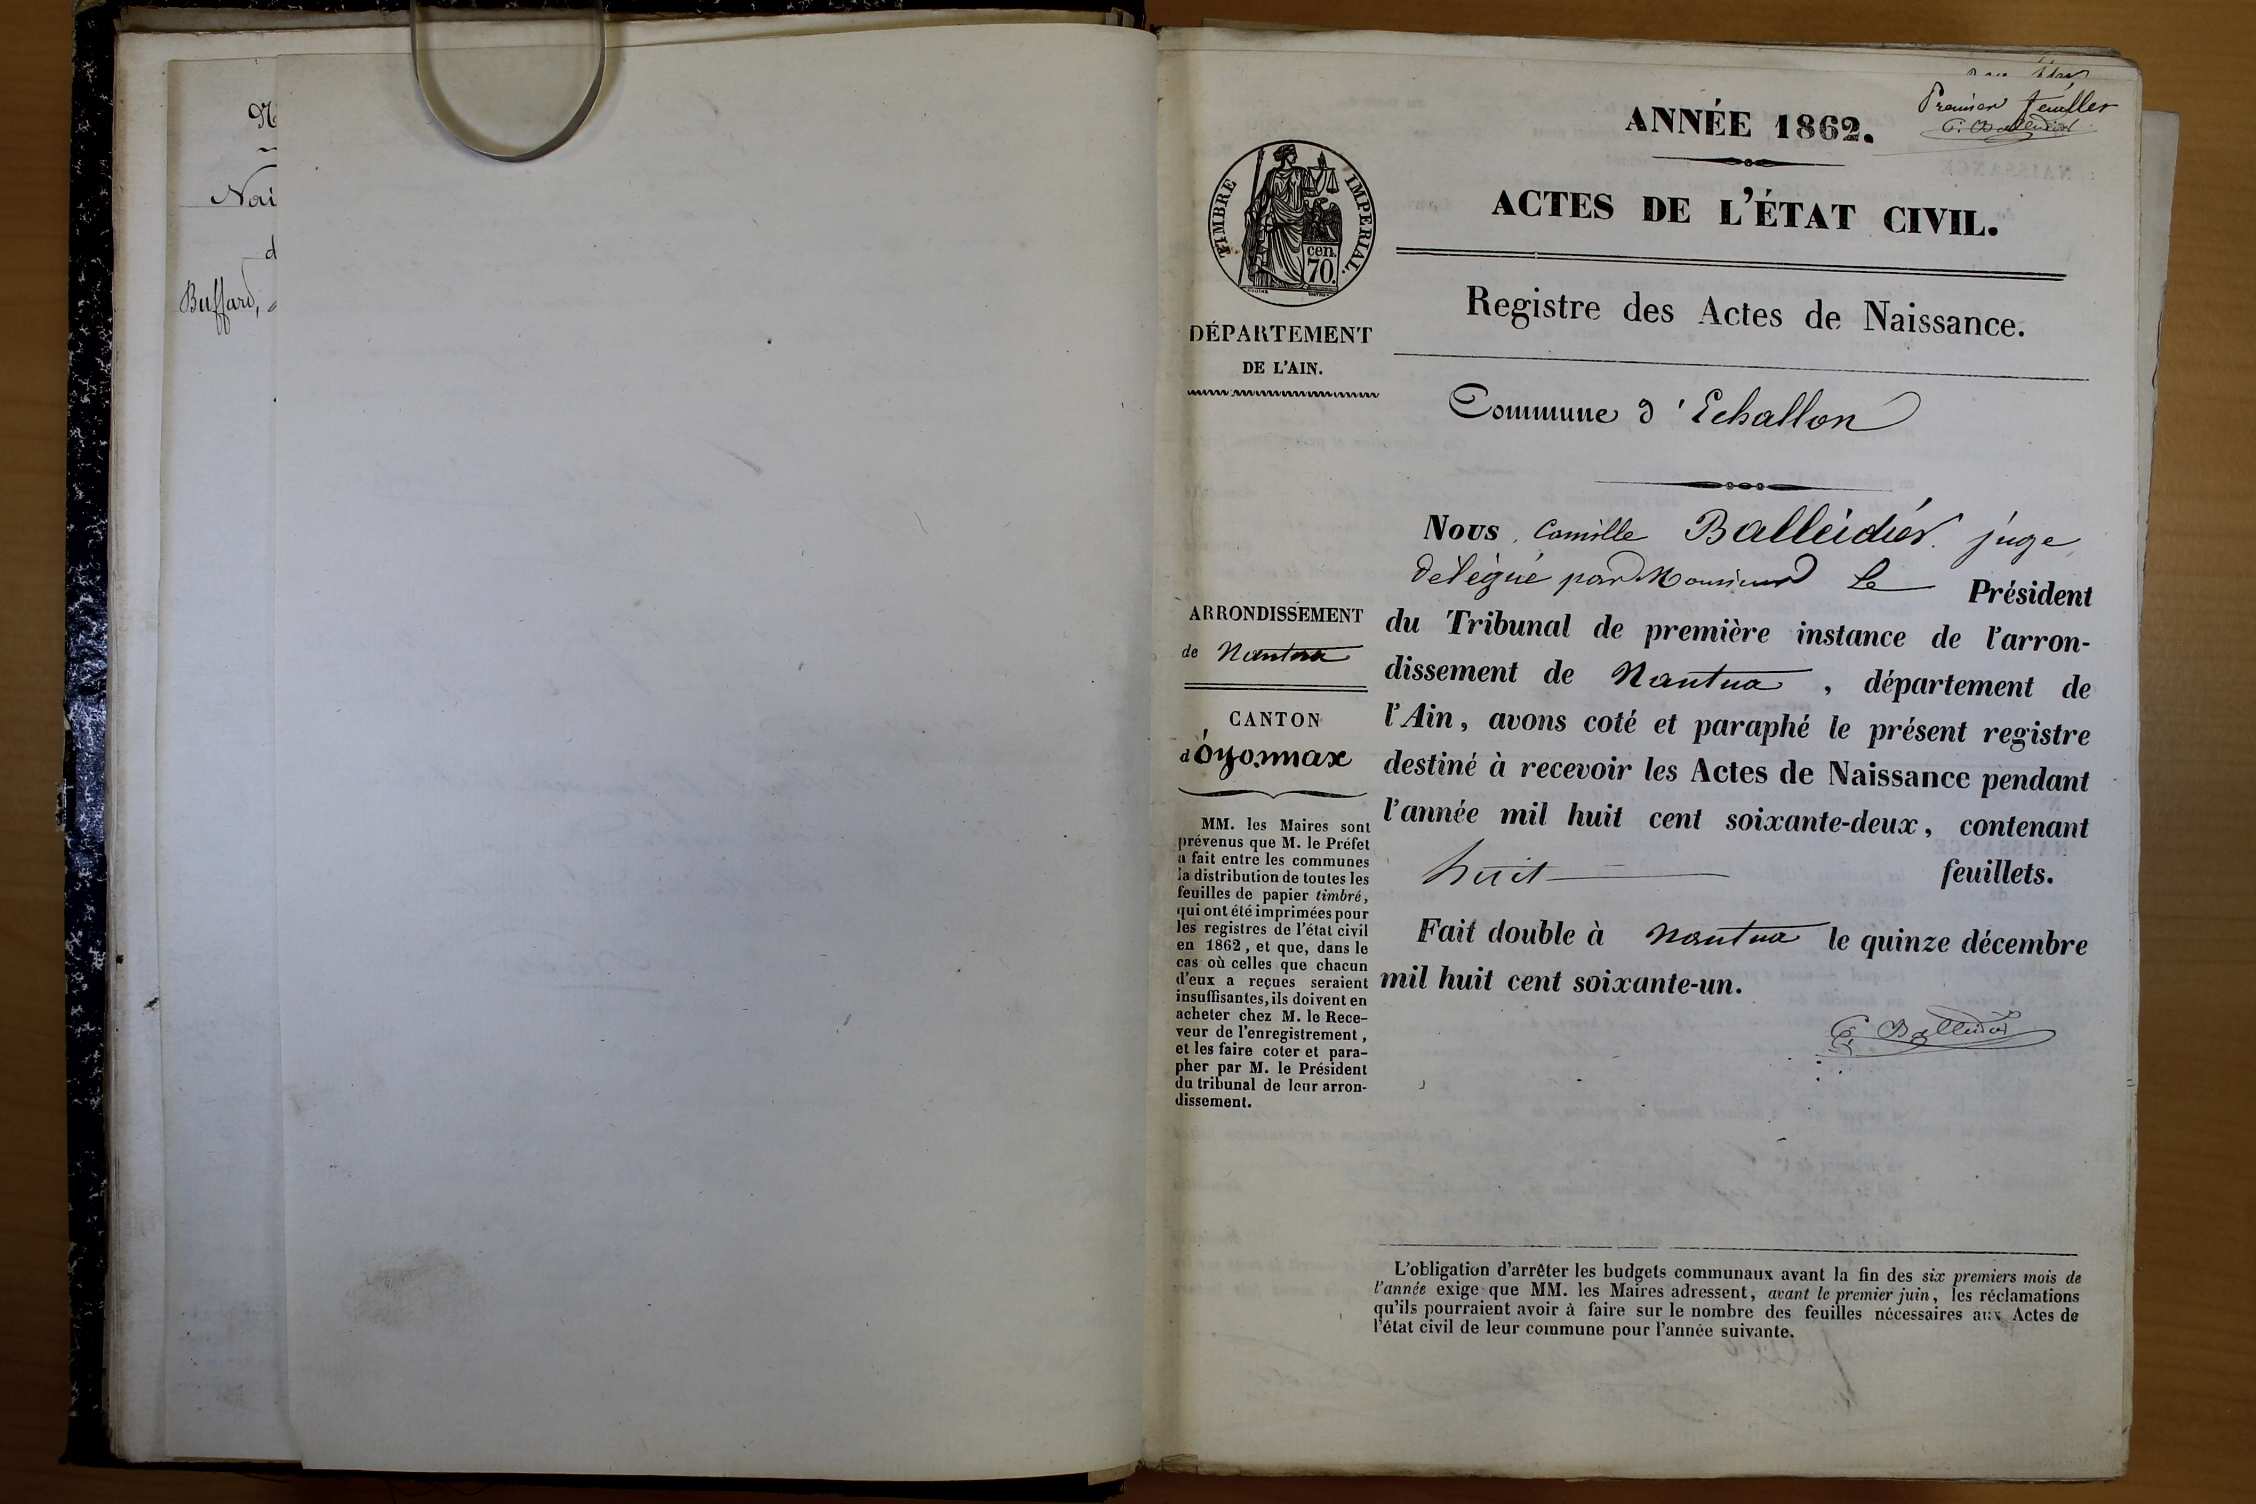 Nai
d
Buffard,
Premier feuillet
C. Balleidier
ANNÉE 1862.
ACTES DE L'ÉTAT CIVIL.
TIMBRE IMPERIAL.
cen.
70.
Registre des Actes de Naissance.
DÉPARTEMENT
DE L'AIN.
Commune d'Echallon
Nous Camille Balleidier juge
délégué par Monsieur le Président
du Tribunal de première instance de l'arron-
dissement de Nantua, département de
l'Ain, avons coté et paraphé le présent registre
destiné à recevoir les Actes de Naissance pendant
l'année mil huit cent soixante-deux, contenant
huit feuillets.
Fait double à Nantua le quinze décembre
mil huit cent soixante-un.
C. Balleidier
ARRONDISSEMENT
de Nantua
CANTON
d'Oyonnax
MM. les Maires sont
prévenus que M. le Préfet
a fait entre les communes
la distribution de toutes les
feuilles de papier timbré,
qui ont été imprimées pour
les registres de l'état civil
en 1862, et que, dans le
cas où celles que chacun
d'eux a reçues seraient
insuffisantes, ils doivent en
acheter chez M. le Rece-
veur de l'enregistrement,
et les faire coter et para-
pher par M. le Président
du tribunal de leur arron-
dissement.
L'obligation d'arrêter les budgets communaux avant la fin des six premiers mois de
l'année exige que MM. les Maires adressent, avant le premier juin, les réclamations
qu'ils pourraient avoir à faire sur le nombre des feuilles nécessaires aux Actes de
l'état civil de leur commune pour l'année suivante.